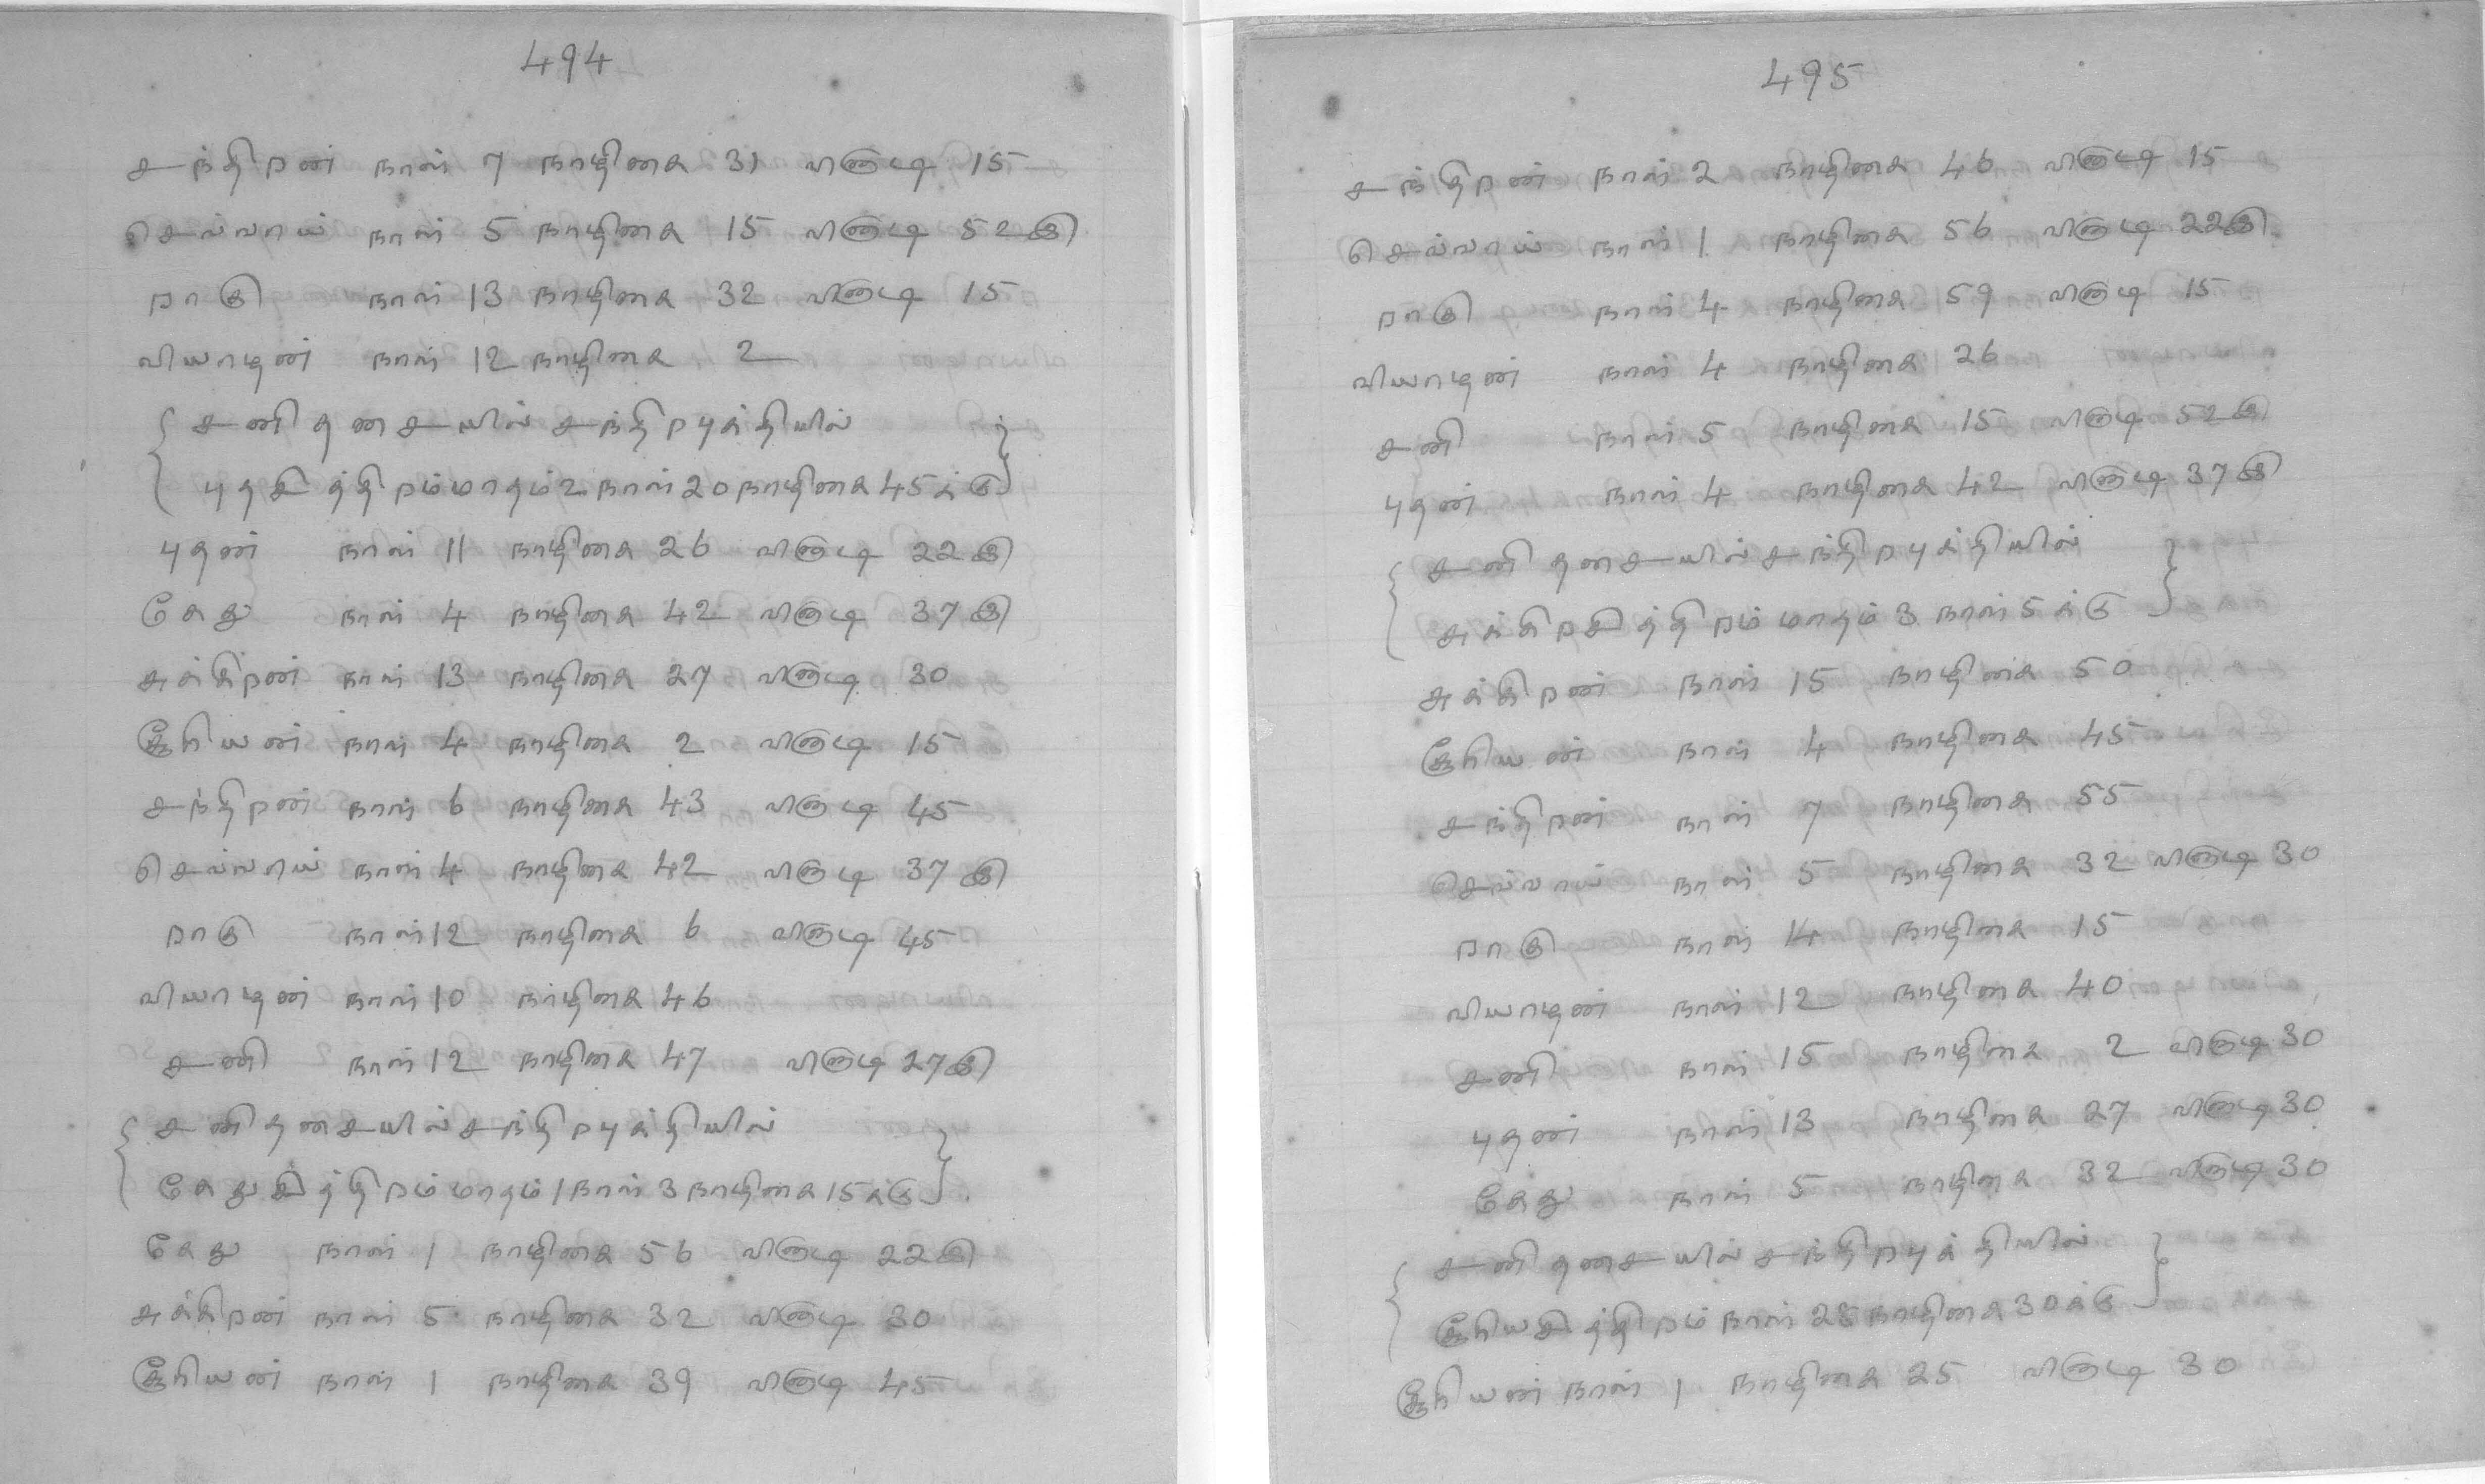 494
சந்திறன் நாள் 7 நாழிகை 31 விநாடி 15
செவ்வாய் நாள் 5 நாழிகை 15 விநாடி 52௲
றாகு நாள் 13 நாழிகை 32 விநாடி 15
வியாழன் நாள் 12 நாழிகை 2
{ சனி தசையில் சந்திறபுக்தியில்
புதசித்திறம் மாதம் 2 நாள் 20 நாழிகை 45க்கு }
புதன் நாள் 11 நாழிகை 26 விநாடி 22
கேது நாள் 4 நாழிகை 42 விநாடி 37
சுக்கிறன் நாள் 13 நாழிகை 27 விநாடி 30
சூரியன் நாள் 4 நாழிகை 2 விநாடி 15
சந்திறன் நாள் 6 நாழிகை 43 விநாடி 45
செவ்வாய் நாள் 4 நாழிகை 42 விநாடி 37
றாகு நாள் 12 நாழிகை 6 விநாடி 45
வியாழன் நாள் 10 நாழிகை 46
சனி நாள் 12 நாழிகை 47 விநாடி 27
{ சனி தசையில் சந்திறபுக்தியில்
கேதுசித்திறம் மாதம் 1 நாள் 3 நாழிகை 15க்கு }
கேது நாள் 1 நாழிகை 56 விநாடி 22
சுக்கிறன் நாள் 5 நாழிகை 32 விநாடி 30
சூரியன் நாள் 1 நாழிகை 39 விநாடி 45
495
சந்திறன் நாள் 2 நாழிகை 46 விநாடி 15
செவ்வாய் நாள் 1 நாழிகை 56 விநாடி 22
றாகு நாள் 4 நாழிகை 59 விநாடி 15
வியாழன் நாள் 4 நாழிகை 26
சனி நாள் 5 நாழிகை 15 விநாடி 52
புதன் நாள் 4 நாழிகை 42 விநாடி 37
{ சனி தசையில் சந்திறபுக்தியில்
சுக்கிறசித்திறம் மாதம் 3 நாள் 5க்கு }
சுக்கிறன் நாள் 15 நாழிகை 50
சூரியன் நாள் 4 நாழிகை 45
சந்திறன் நாள் 7 நாழிகை 55
செவ்வாய் நாள் 5 நாழிகை 32 விநாடி 30
றாகு நாள் 14 நாழிகை 15
வியாழன் நாள் 12 நாழிகை 40
சனி நாள் 15 நாழிகை 2 விநாடி 30
புதன் நாள் 13 நாழிகை 27 விநாடி 30
கேது நாள் 5 நாழிகை 32 விநாடி 30
{ சனி தசையில் சந்திறபுக்தியில்
சூரியசித்திறம் நாள் 28 நாழிகை 30க்கு }
சூரியன் நாள் 1 நாழிகை 25 விநாடி 30